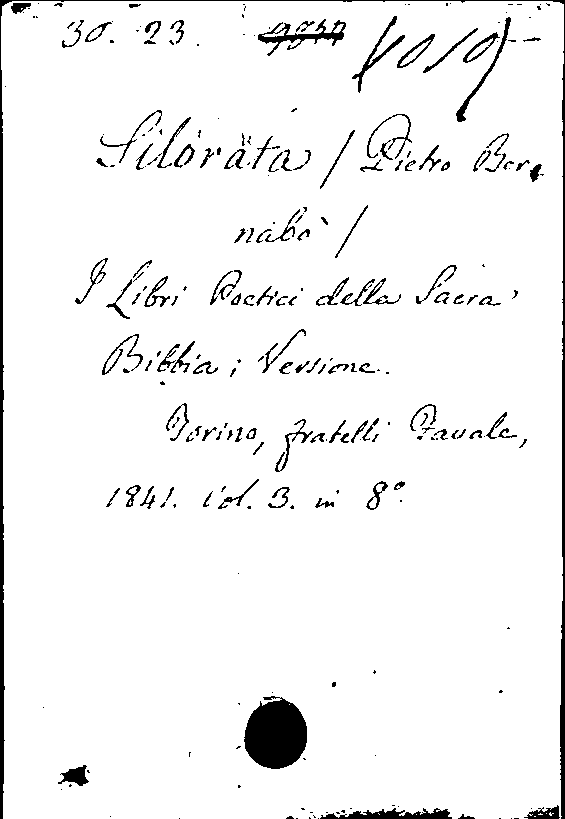 30. 23.
Silorata / Pietro Ber,
nabò /
I Libri Poetici della Sacra
Bibbia; Versione.
Torino, fratelli Favale,
1841. Vol. 3. in 8º.